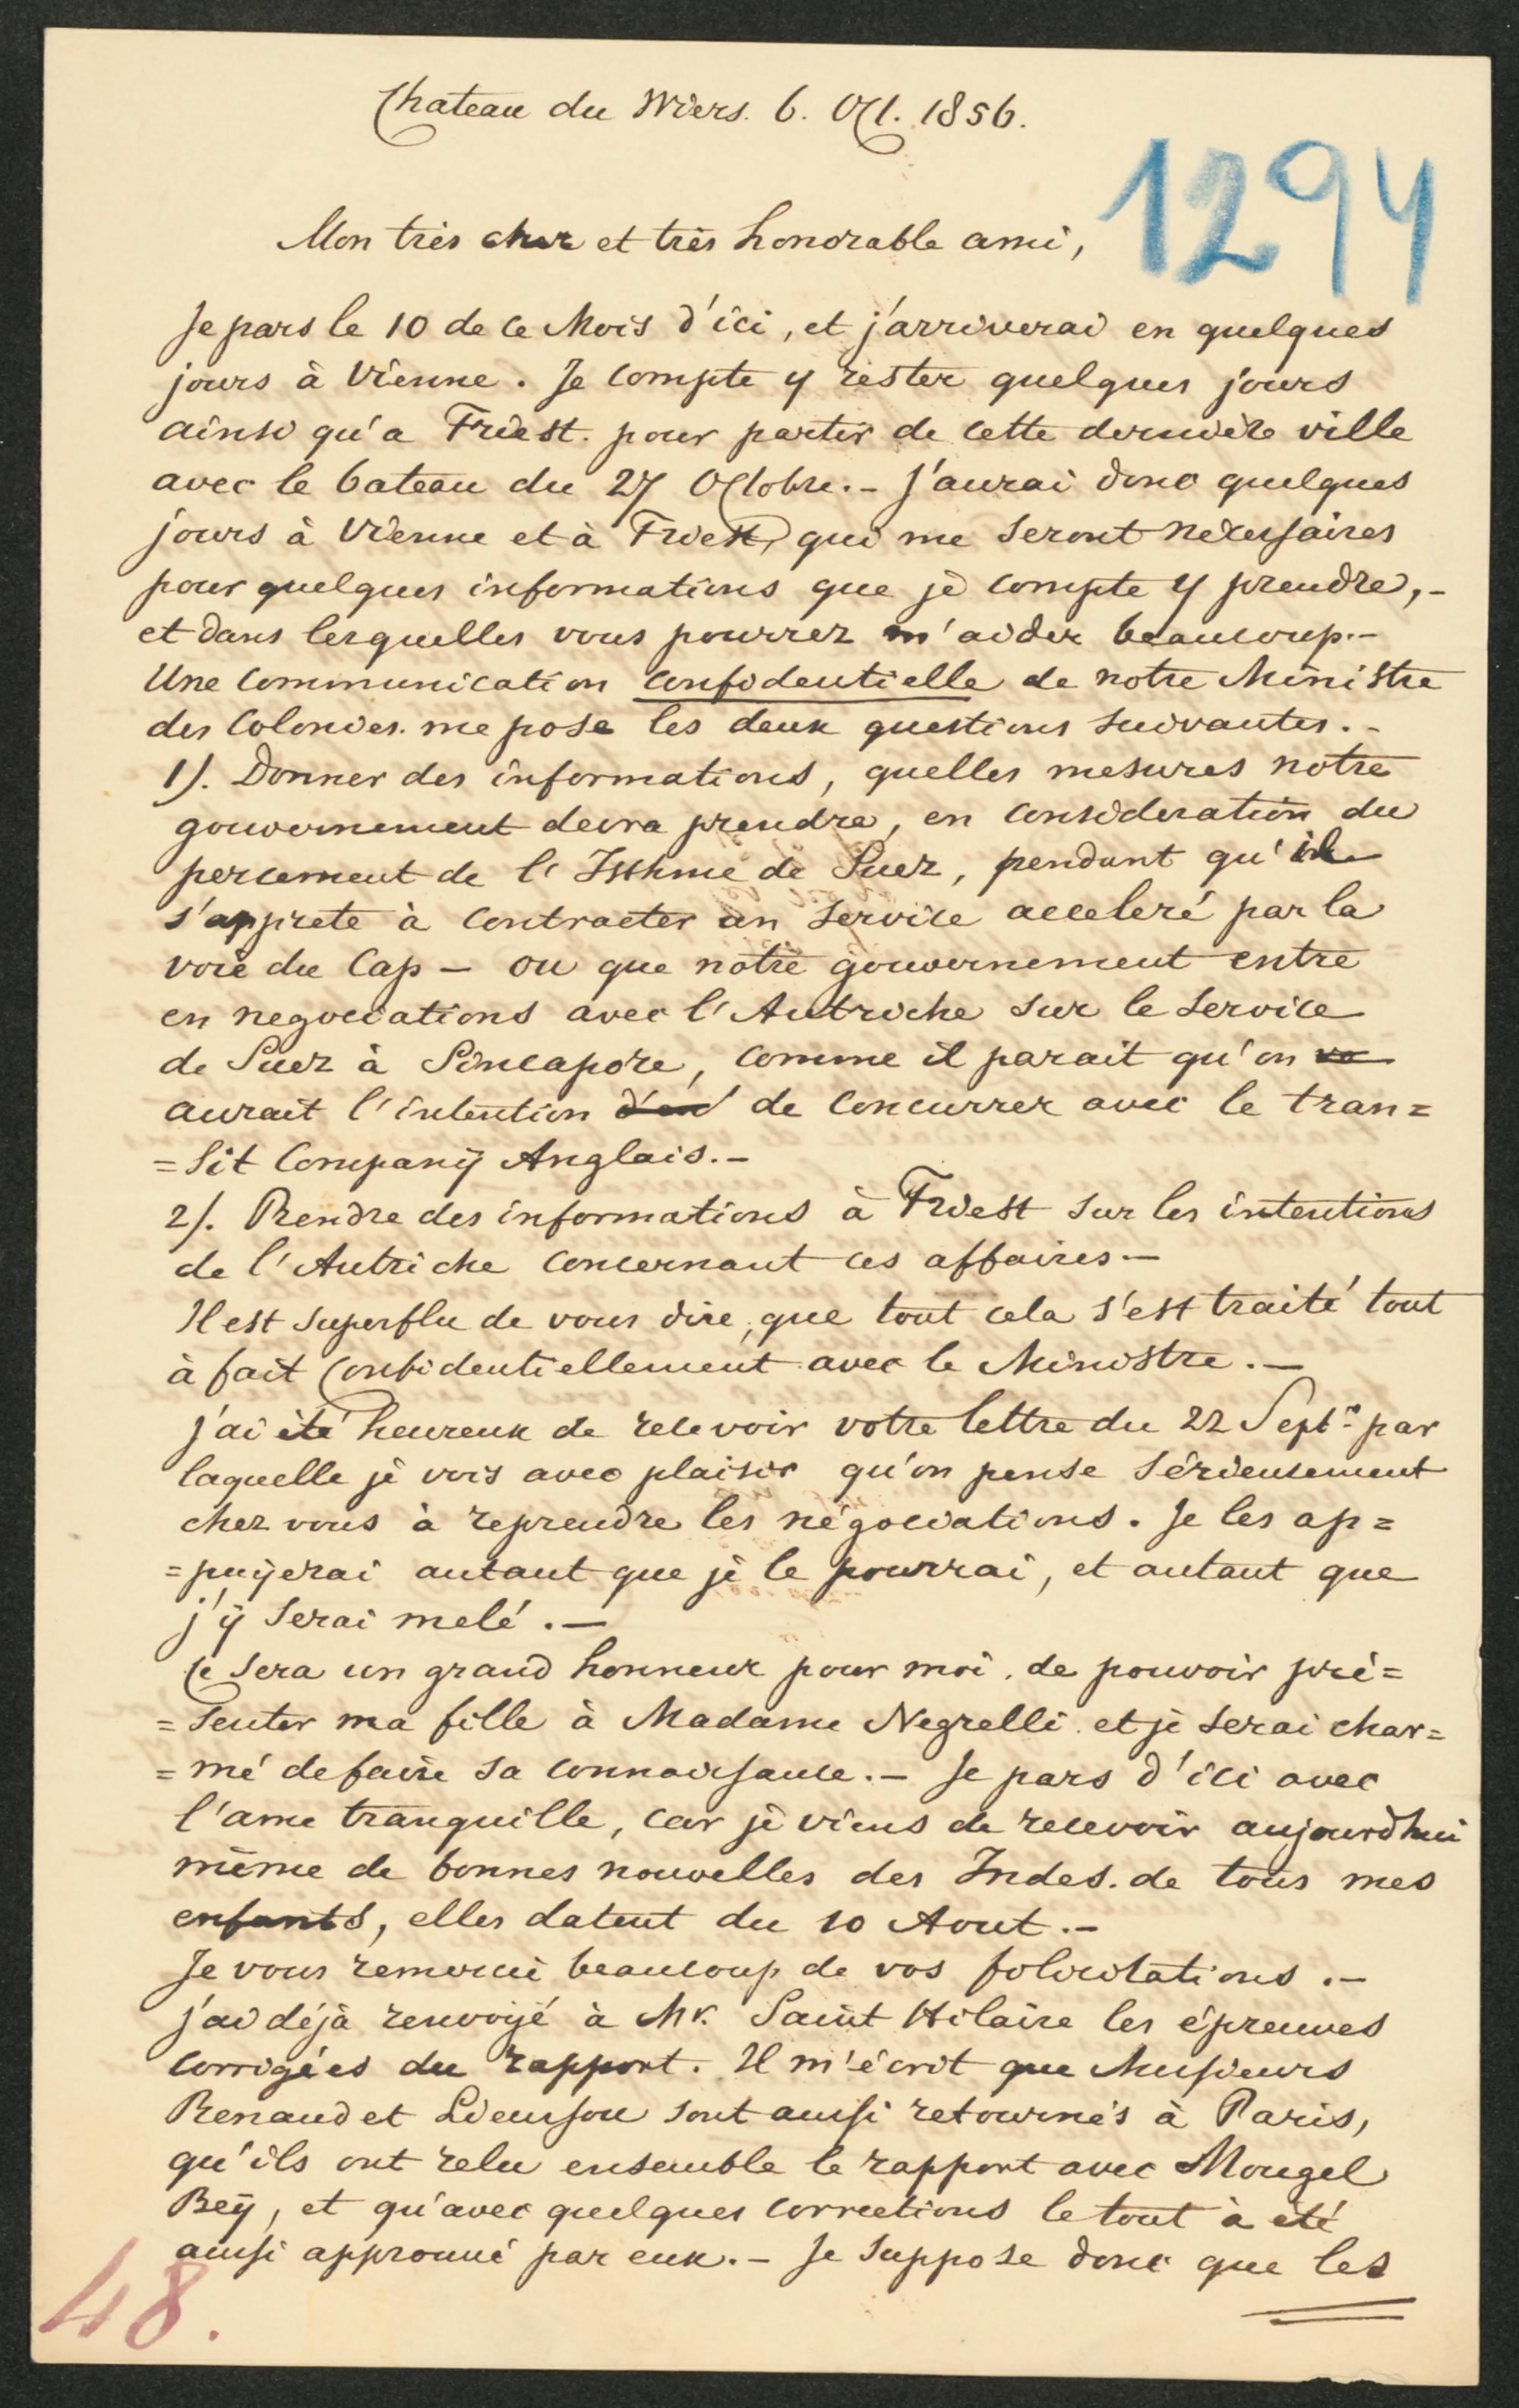 Chateau du Wiers. 6. Oct. 1856.
1294
Mon très cher et très honorable ami,
Je pars le 10 de ce Mois d'ici, et j'arriverai en quelques
jours à Vienne. Je compte y rester quelques jours
ainsi qu'a Triest. pour partir de cette dernière ville
avec le bateau du 27 Octobre.- J'aurai donc quelques
jours à Vienne et à Triest, qui me seront necessaires
pour quelques informations que je compte y prendre,-
et dans lesquelles vous pourrez m'aider beaucoup.-
Une communication confidentielle de notre Ministre
des Colonies. me pose les deux questions suivantes.-
1). Donner des informations, quelles mesures notre
gouvernement devra prendre, en consideration du
percement de l'Isthme de Suez, pendant qu'il
s'apprete à contracter un service acceleré par la
voie du Cap - ou que notre gouvernement entre
en negociations avec l'Autriche sur le service
de Suez à Sincapore, comme il parait qu'on va
aurait l'intention d'en de concurrer avec le tran=
=sit Companÿ Anglais.-
2). Prendre des informations à Triest sur les intentions
de l'Autriche concernant ces affaires-
Il est superflu de vous dire, que tout cela s'est traité tout
à fait confidentiellement avec le Ministre.-
j'ai été heureux de recevoir votre lettre du 22 Sept. par
laquelle je vois avec plaisir qu'on pense sérieusement
chez vous à reprendre les négociations. Je les ap=
=puÿerai autant que je le pourrai, et autant que
j'ÿ serai melé.-
Ce sera un grand honneur pour moi. de pouvoir pré=
=senter ma fille à Madame Negrelli. et je serai char=
=mé de faire sa connaissance.- Je pars d'ici avec
l'ame tranquille, car je viens de recevoir aujourdhui
même de bonnes nouvelles des Indes. de tous mes
enfants, elles datent du 10 Aout.-
Je vous remercie beaucoup de vos felicitations.-
j'ai déjà renvoÿé à Mr. Saint Hilaire les épreuves
corrigées du rapport. Il m'écrit que Messieurs
Renaud et Lieussou sont aussi retournés à Paris,
qu'ils ont relu ensemble le rapport avec Mougel
Beÿ, et qu'avec quelques corrections le tout à été
aussi approuvé par eux.- Je suppose donc que les
48.